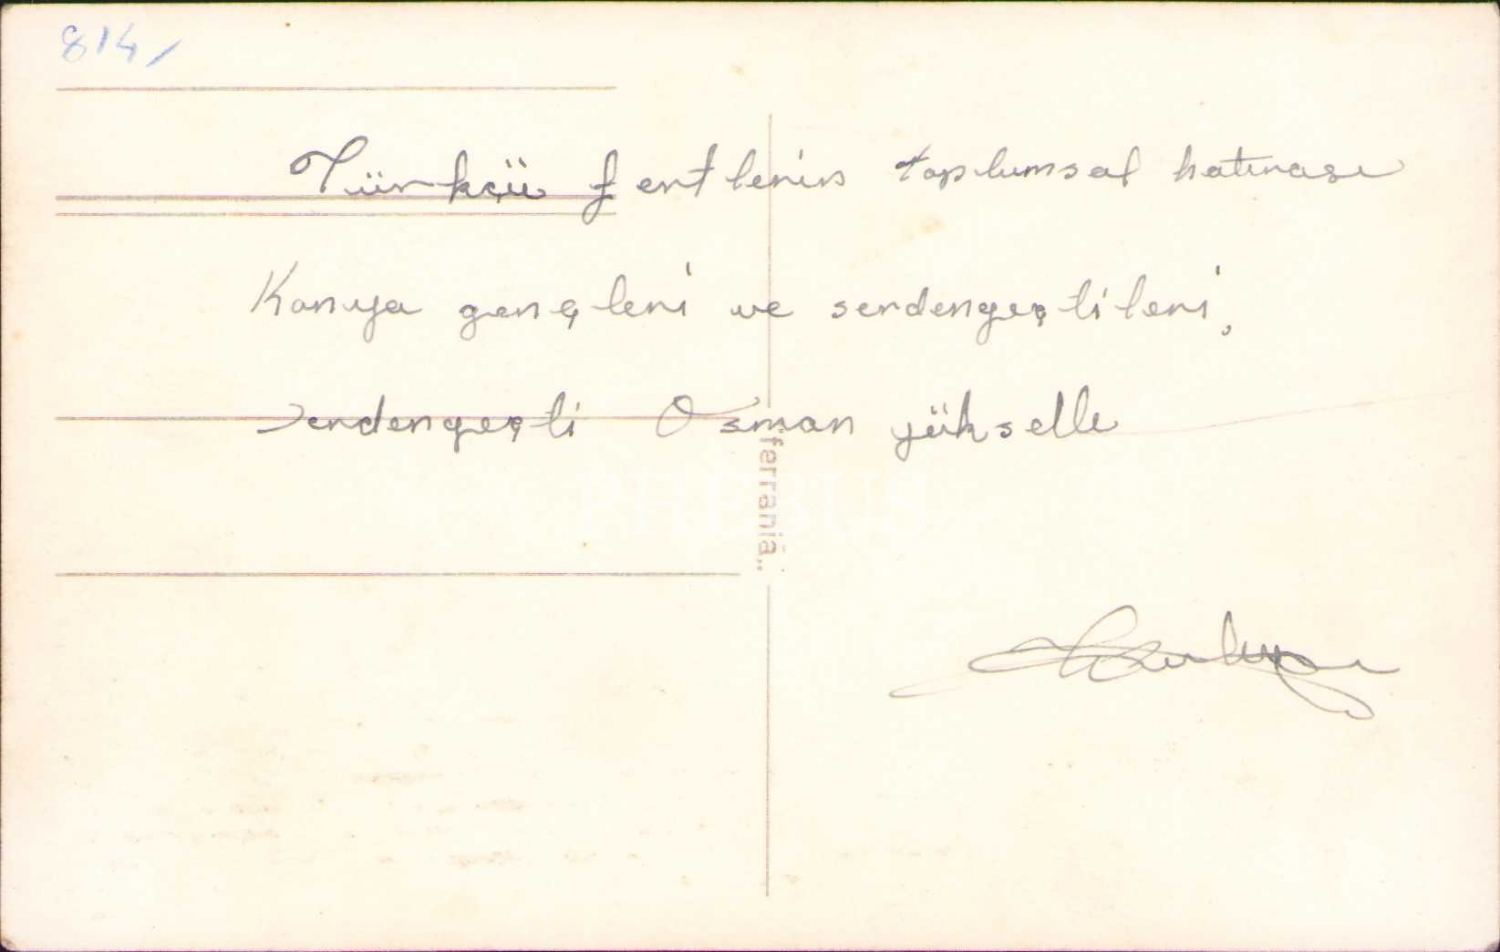 814/
Türkçü fertlerin toplumsal hatırası
Konya gençleri ve serdengeçtileri,
Serdengeçti Osman yükselle
ferrania